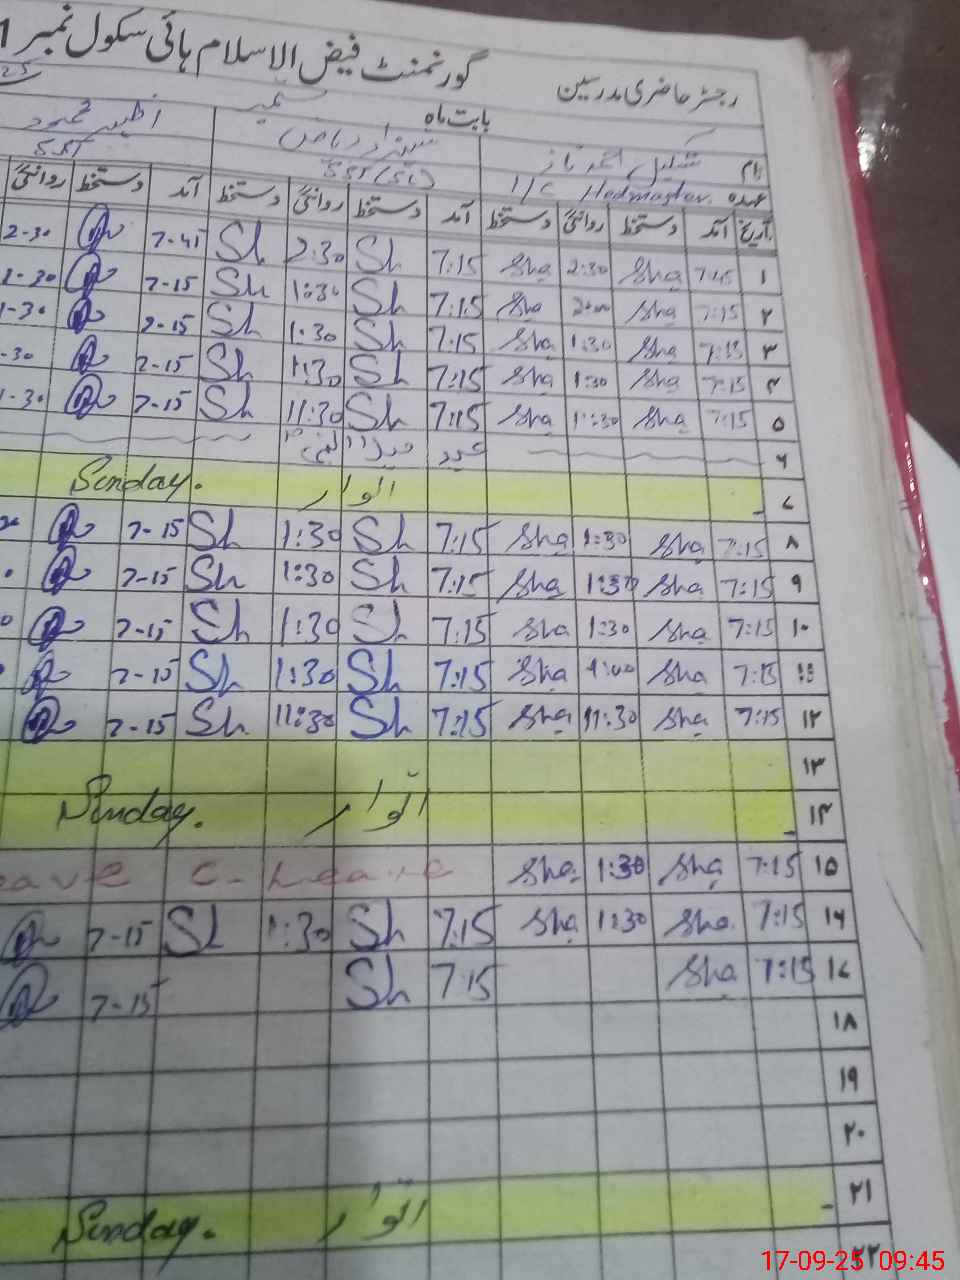 گورنمنٹ فیض الاسلام ہائی سکول نمبر 1
رجسٹر حاضری مدرسین
بابت ماہ ستمبر
نام شکیل احمد ناز
اظہر محمود
عہدہ I/C Hedmaster. SST (Sc) SST
تاریخ آمد دستخط روانگی دستخط آمد دستخط روانگی دستخط آمد دستخط روانگی
۱ 7:15 Sha 2:30 Sha 7:15 Sh 2:30 Sh 7-45 2-30
۲ 7:15 Sha Sha 7:15 Sh 1:30 Sh 7-15 1-30
۳ 7:15 Sha 1:30 Sha 7:15 Sh 1:30 Sh 7-15 1-30
۴ 7:15 Sha 1:30 Sha 7:15 Sh 1:30 Sh 7-15 -30
۵ 7:15 Sha 11:30 Sha 7:15 Sh 11:30 Sh 7-15 1-30
۶ عید میلاد النبی
۷ اتوار Sunday.
۸ 7:15 Sha 1:30 Sha 7:15 Sh 1:30 Sh 7-15
۹ 7:15 Sha 1:30 Sha 7:15 Sh 1:30 Sh 7-15
۱۰ 7:15 Sha 1:30 Sha 7:15 Sh 1:30 Sh 7-15
۱۱ 7:15 Sha 1:00 Sha 7:15 Sh 1:30 Sh 7-15
۱۲ 7:15 Sha 11:30 Sha 7:15 Sh 11:30 Sh 7-15
۱۳
۱۴ اتوار Sunday.
۱۵ 7:15 Sha 1:30 Sha C-Leave eave
۱۶ 7:15 Sha 1:30 Sha 7:15 Sh 1:30 Sh 7-15
۱۷ 7:15 Sha 7:15 Sh 7-15
۱۸
۱۹
۲۰
۲۱ اتوار Sunday.
۲۲
17-09-25 09:45